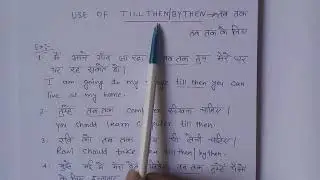 USE OF TILL THEN/BY THEN → तब तक
तब तक के लिए
Ex:-
1. मैं अपने गाँव जा रहा तब तक तुम मेरे घर
पर रह सकते हो।
I am going do my till then you can
live at my home.
2. तुम्हें तब तक सीखना चाहिए।
You should learn computer till then.
3. रवि को तब तक लेनी चाहिए।
Ravi should take then/by then.
4. तब तक